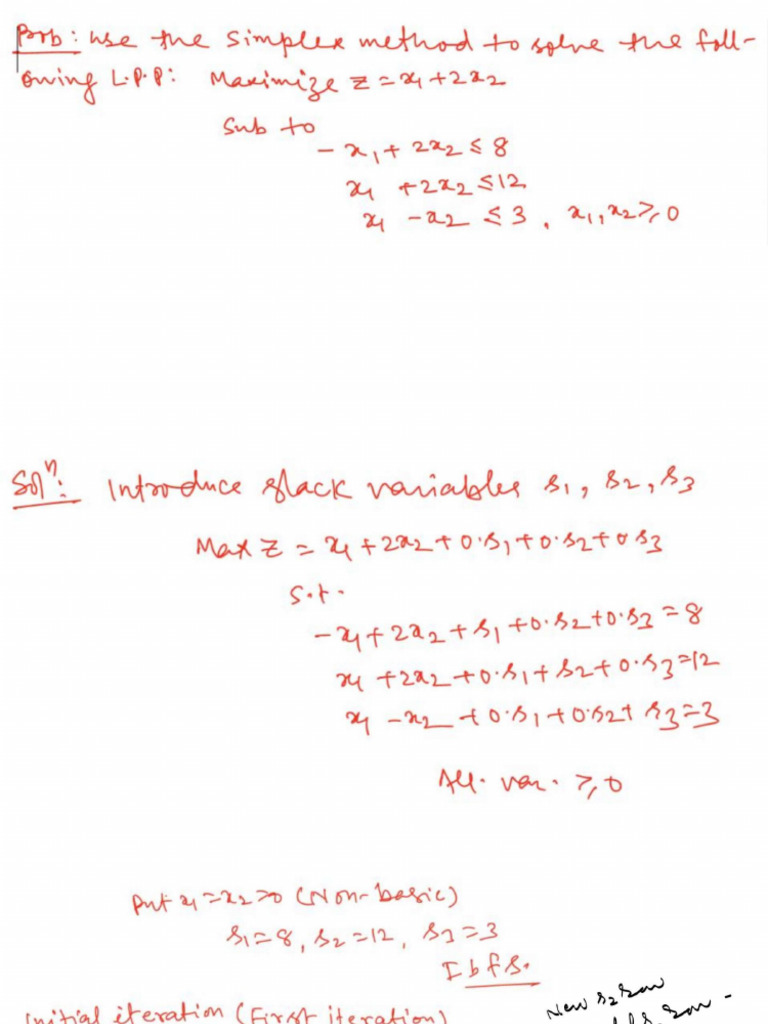 Prb: Use the simplex method to solve the foll-
owing L.P.P: Maximize z = x1 + 2x2
Sub to
- x1 + 2x2 ≤ 8
x1 + 2x2 ≤ 12
x1 - x2 ≤ 3, x1, x2 ≥ 0
Solⁿ: Introduce slack variables s1, s2, s3
Max z = x1 + 2x2 + 0·s1 + 0·s2 + 0 s3
s.t.
- x1 + 2x2 + s1 + 0·s2 + 0·s3 = 8
x1 + 2x2 + 0·s1 + s2 + 0·s3 = 12
x1 - x2 + 0·s1 + 0·s2 + s3 = 3
All. var. ≥ 0
Put x1 = x2 = 0 (Non-basic)
s1 = 8, s2 = 12, s3 = 3
Ibfs.
Initial iteration (First iteration)
New s2 row
row -